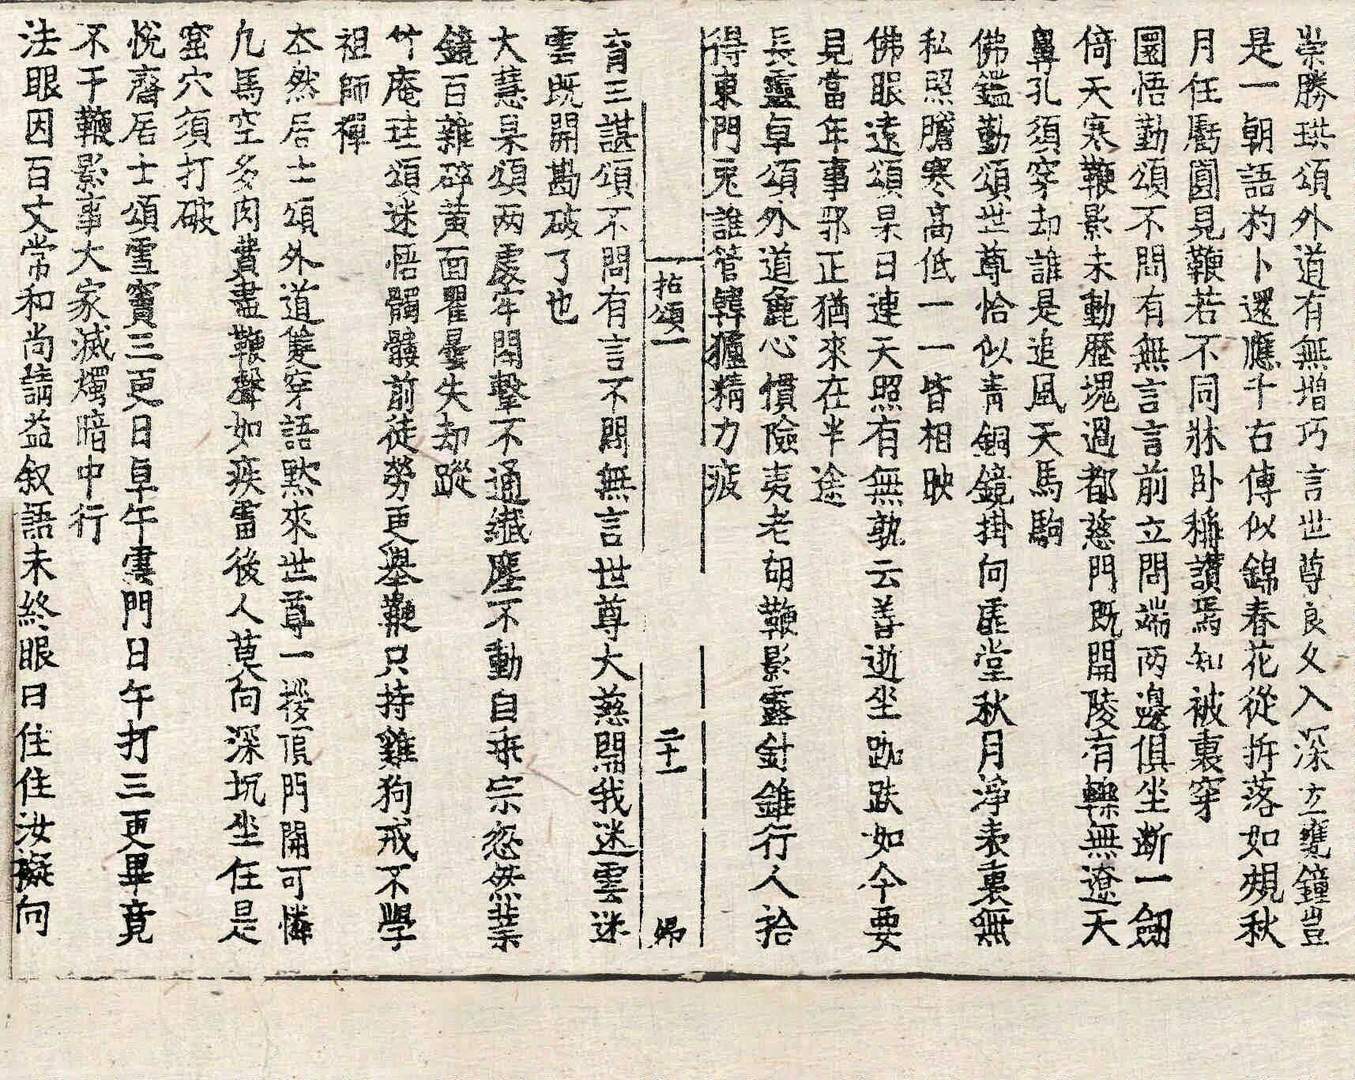 崇勝珙頌外道有無增巧言世尊良久入深玄甕鐘豈
是一朝語杓卜還應千古傳似錦春花從拆落如規秋
月任虧圓見鞭若不同牀臥稱讚焉知被裏穿
圜悟勤頌不問有無言言前立問端两邊俱坐断一劒
倚天寒鞭影未動歷塊過都慈門既開陵有轢無遼天
鼻孔須穿却誰是追風天馬駒
佛鑑勤頌世尊恰似青銅鏡掛向虛堂秋月淨表裏無
私照膽寒高低一一皆相映
佛眼遠頌杲日連天照有無孰云善逝坐跏趺如今要
見當年事邪正猶來在半途
長靈卓頌外道麁心慣險夷老胡鞭影露針錐行人拾
得東門兎誰管韓獹精力疲
拈頌一 二十一 佛
育王諶頌不問有言不問無言世尊大慈開我迷雲迷
雲既開勘破了也
大慧杲頌两處牢関擊不通纎塵不動自乖宗忽然業
鏡百雜碎黃面瞿曇失却蹤
竹庵珪頌迷悟髑髏前徒勞更舉鞭只持雞狗戒不學
祖師禪
本然居士頌外道雙穿語默來世尊一拶頂門開可憐
九馬空多肉費盡鞭聲如疾雷後人莫向深坑坐任是
窠穴須打破
悅齋居士頌雪竇三更日卓午雲門日午打三更畢竟
不干鞭影事大家滅燭暗中行
法眼因百丈常和尚請益叙語未終眼曰住住汝擬向